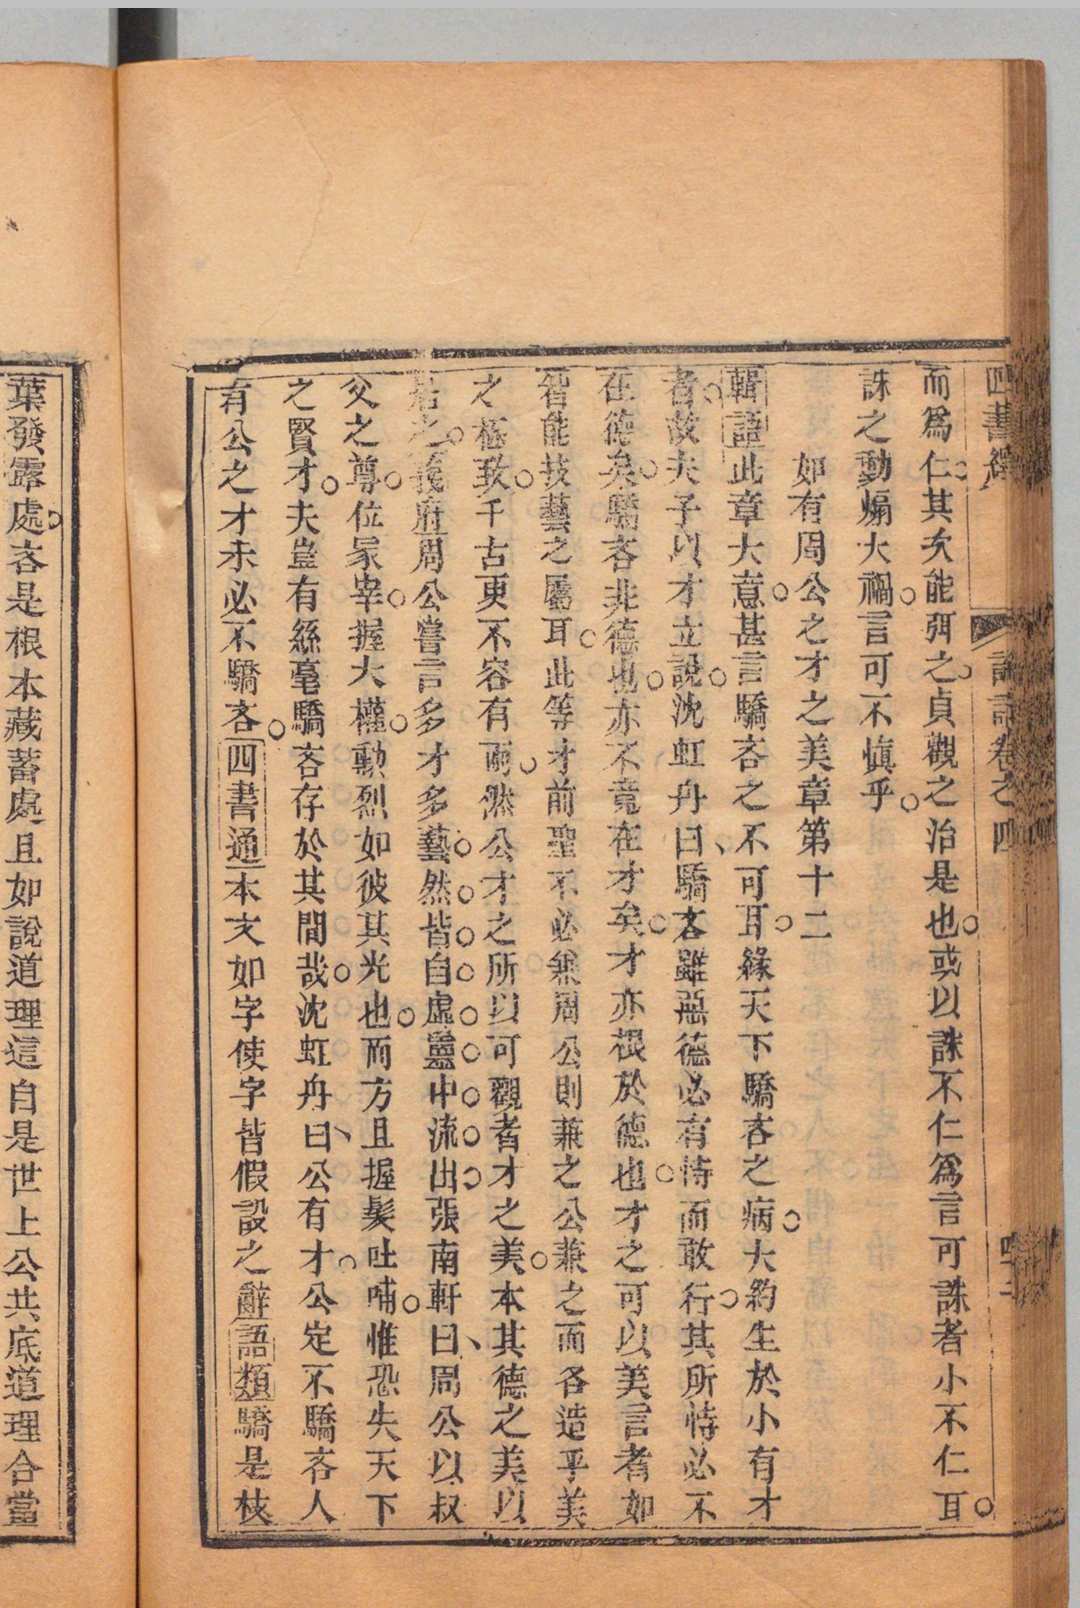 四書
論語卷之四
而爲仁其次能弭之貞觀之治是也或以誅不仁爲言可誅者小不仁耳
誅之動煽大禍言可不慎乎
如有周公之才之美章第十二
輯語此章大意甚言驕吝之不可耳緣天下驕吝之病大約生於小有才
者故夫子以才立說沈虹舟曰驕吝雖惡德必有恃而敢行其所恃必不
在德矣驕吝非德也亦不竟在才矣才亦根於德也才之可以美言者如
智能技藝之屬耳此等才前聖不必無周公則兼之公兼之而各造乎美
之極致千古更不容有兩然公才之所以可觀者才之美本其德之美以
居之義府周公嘗言多才多藝然皆自虛靈中流出張南軒曰周公以叔
父之尊位冢宰握大權勳烈如彼其光也而方且握髮吐哺惟恐失天下
之賢才夫豈有絲毫驕吝存於其間哉沈虹舟曰公有才公定不驕吝人
有公之才未必不驕吝四書通本文如字使字皆假設之辭語類驕是枝
葉發露處吝是根本藏蓄處且如說道理這自是世上公共底道理合當